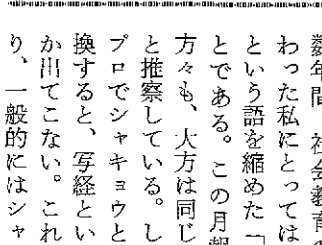 数年間、社会教育
わった私にとっては
という語を縮めた「
とである。この月報
方々も、大方は同じ
と推察している。し
プロでシャキョウと
換すると、写経とい
か出てこない。これ
り、一般的にはシャ